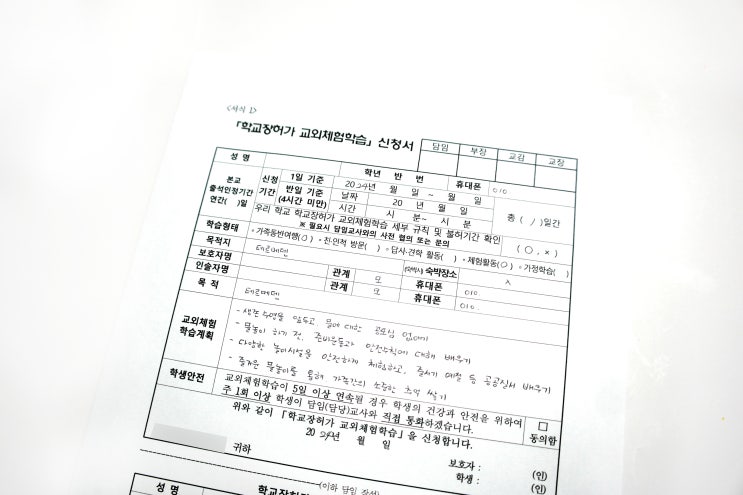 <서식 1>
「학교장허가 교외체험학습」 신청서
담임 부장 교감 교장
성 명 학년 반 번 휴대폰 010
본교 출석인정기간 연간( )일
신청 기간
1일 기준 2024년 월 일 ~ 월 일
반일 기준 (4시간 미만)
날짜 20 년 월 일
시간 시 분~ 시 분
총 ( / )일간
우리 학교 학교장허가 교외체험학습 세부 규칙 및 불허기간 확인 ( ○ , × )
※ 필요시 담임교사와의 사전 협의 또는 문의
학습형태 ◦가족동반여행(○) ◦친·인척 방문( ) ◦답사·견학 활동( ) ◦체험활동(○) ◦가정학습( )
목적지 테르메덴 (숙박시) 숙박장소 ×
보호자명 관계 모 휴대폰 010.
인솔자명 관계 모 휴대폰 010.
목 적 테르메덴
교외체험 학습계획
- 생존수영을 앞두고, 물에 대한 공포심 없애기
- 물놀이 하기 전, 준비운동과 안전수칙에 대해 배우기
- 다양한 놀이시설을 안전하게 체험하고, 줄서기 예절 등 공공질서 배우기
- 즐거운 물놀이를 통해 가족간의 소중한 추억 쌓기
학생안전
교외체험학습이 5일 이상 연속된 경우 학생의 건강과 안전을 위하여
주 1회 이상 학생이 담임(담당)교사와 직접 통화하겠습니다.
□ 동의함
위와 같이 「학교장허가 교외체험학습」을 신청합니다.
2024년 월 일
보호자 : (인)
학생 : (인)
귀하
(이하 담임 작성)
성 명